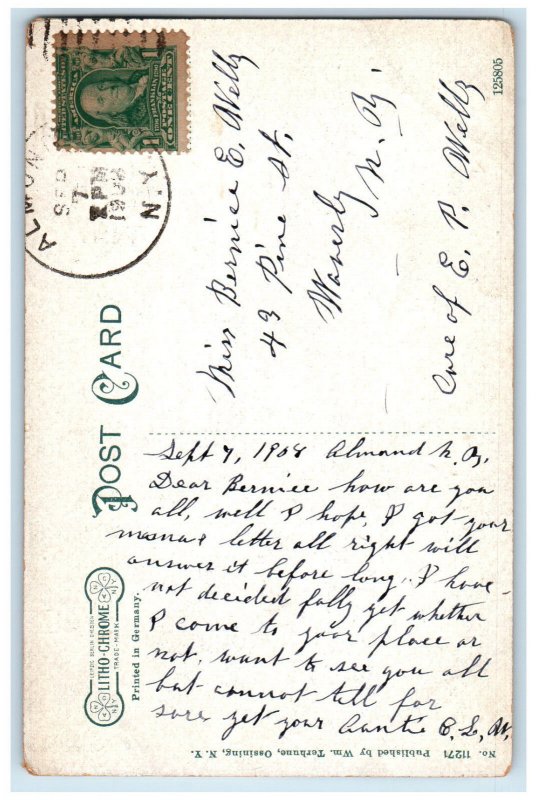 POST CARD
ALMOND N.Y.
SEP
7
PM
UNITED STATES OF AMERICA
POSTAGE
ONE CENT
1
Miss Bernice E. Wells
43 Pine St.
Waverly
N. Y.
Care of E. P. Wells
125805
Sept 7, 1908 Almond N. Y.
Dear Bernice how are you
all, well I hope, I got your
mamas letter all right will
answer it before long. I have
not decided fully yet whether
I come to your place or
not, want to see you all
but cannot tell for
sure yet your Auntie E. L. W.
LEIPZIG BERLIN DRESDEN
LITHO-CHROME
TRADE-MARK
Printed in Germany.
No. 11271 Published by Wm. Terhune, Ossining, N. Y.